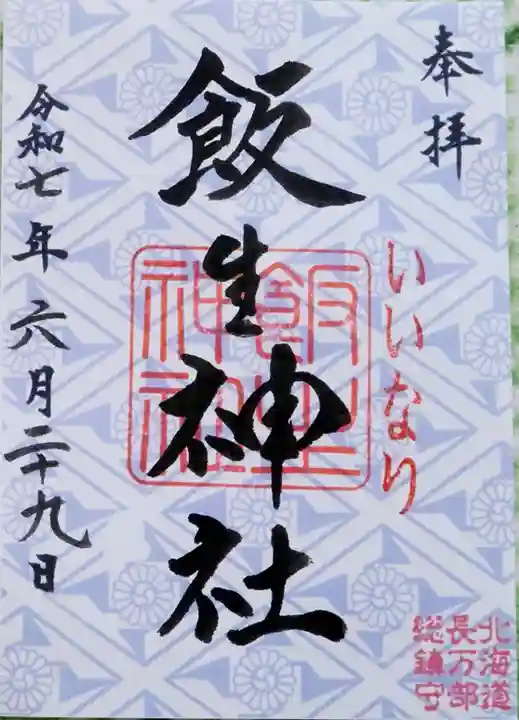 奉拝
いいなり
飯生神社
飯生神社
令和七年六月二十九日
北海道
長万部
総鎮守